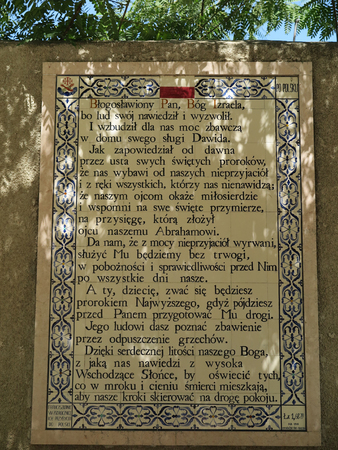 PO POLSKU
Błogosławiony Pan, Bóg Izraela,
bo lud swój nawiedził i wyzwolił.
I wzbudził dla nas moc zbawczą
w domu swego sługi Dawida.
Jak zapowiedział od dawna
przez usta swych świętych proroków,
że nas wybawi od naszych nieprzyjaciół
i z ręki wszystkich, którzy nas nienawidzą;
że naszym ojcom okaże miłosierdzie
i wspomni na swe święte przymierze,
na przysięgę, którą złożył
ojcu naszemu Abrahamowi.
Da nam, że z mocy nieprzyjaciół wyrwani,
służyć Mu będziemy bez trwogi,
w pobożności i sprawiedliwości przed Nim
po wszystkie dni nasze.
A ty, dziecię, zwać się będziesz
prorokiem Najwyższego, gdyż pójdziesz
przed Panem przygotować Mu drogi.
Jego ludowi dasz poznać zbawienie
przez odpuszczenie grzechów.
Dzięki serdecznej litości naszego Boga,
z jaką nas nawiedzi z wysoka
Wschodzące Słońce, by oświecić tych,
co w mroku i cieniu śmierci mieszkają,
aby nasze kroki skierować na drogę pokoju.